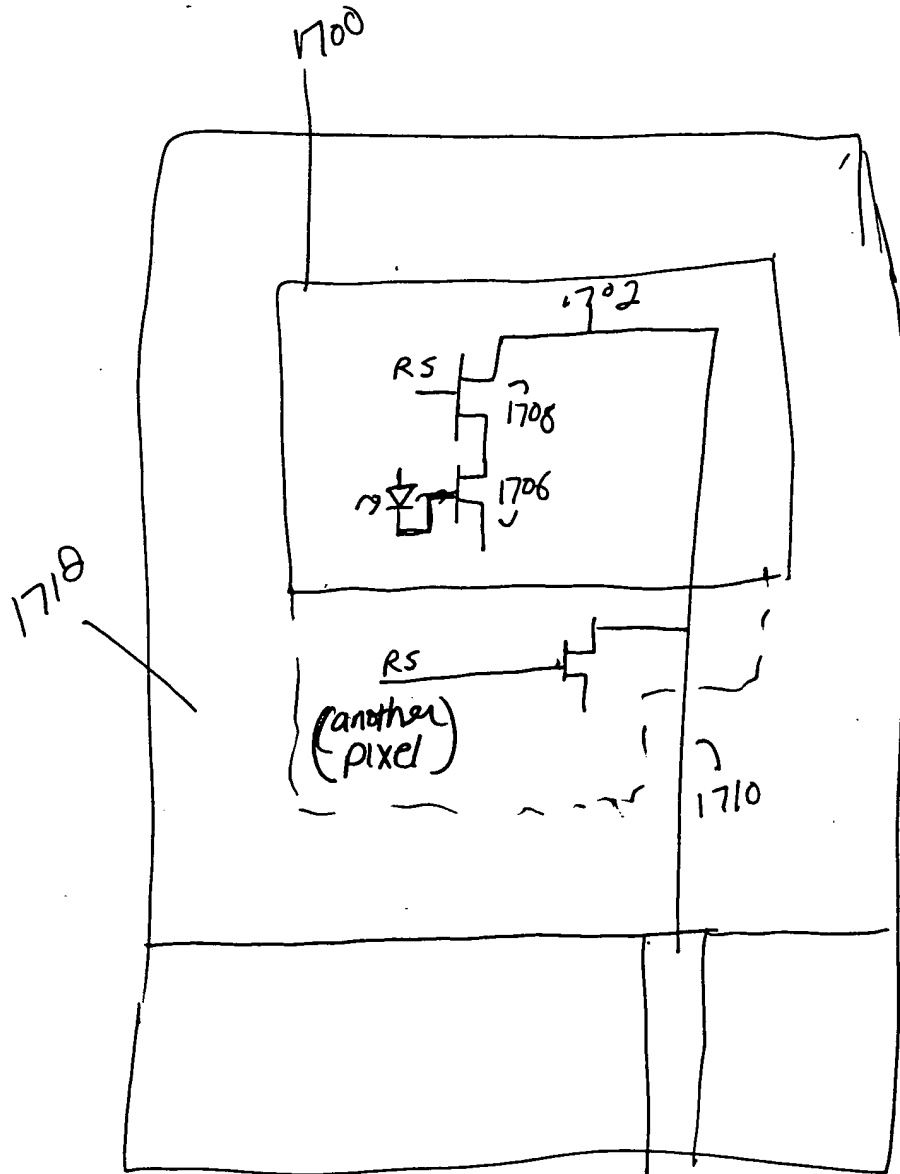 1700
1702
RS
1708
1706
1718
RS
(another
pixel)
1710